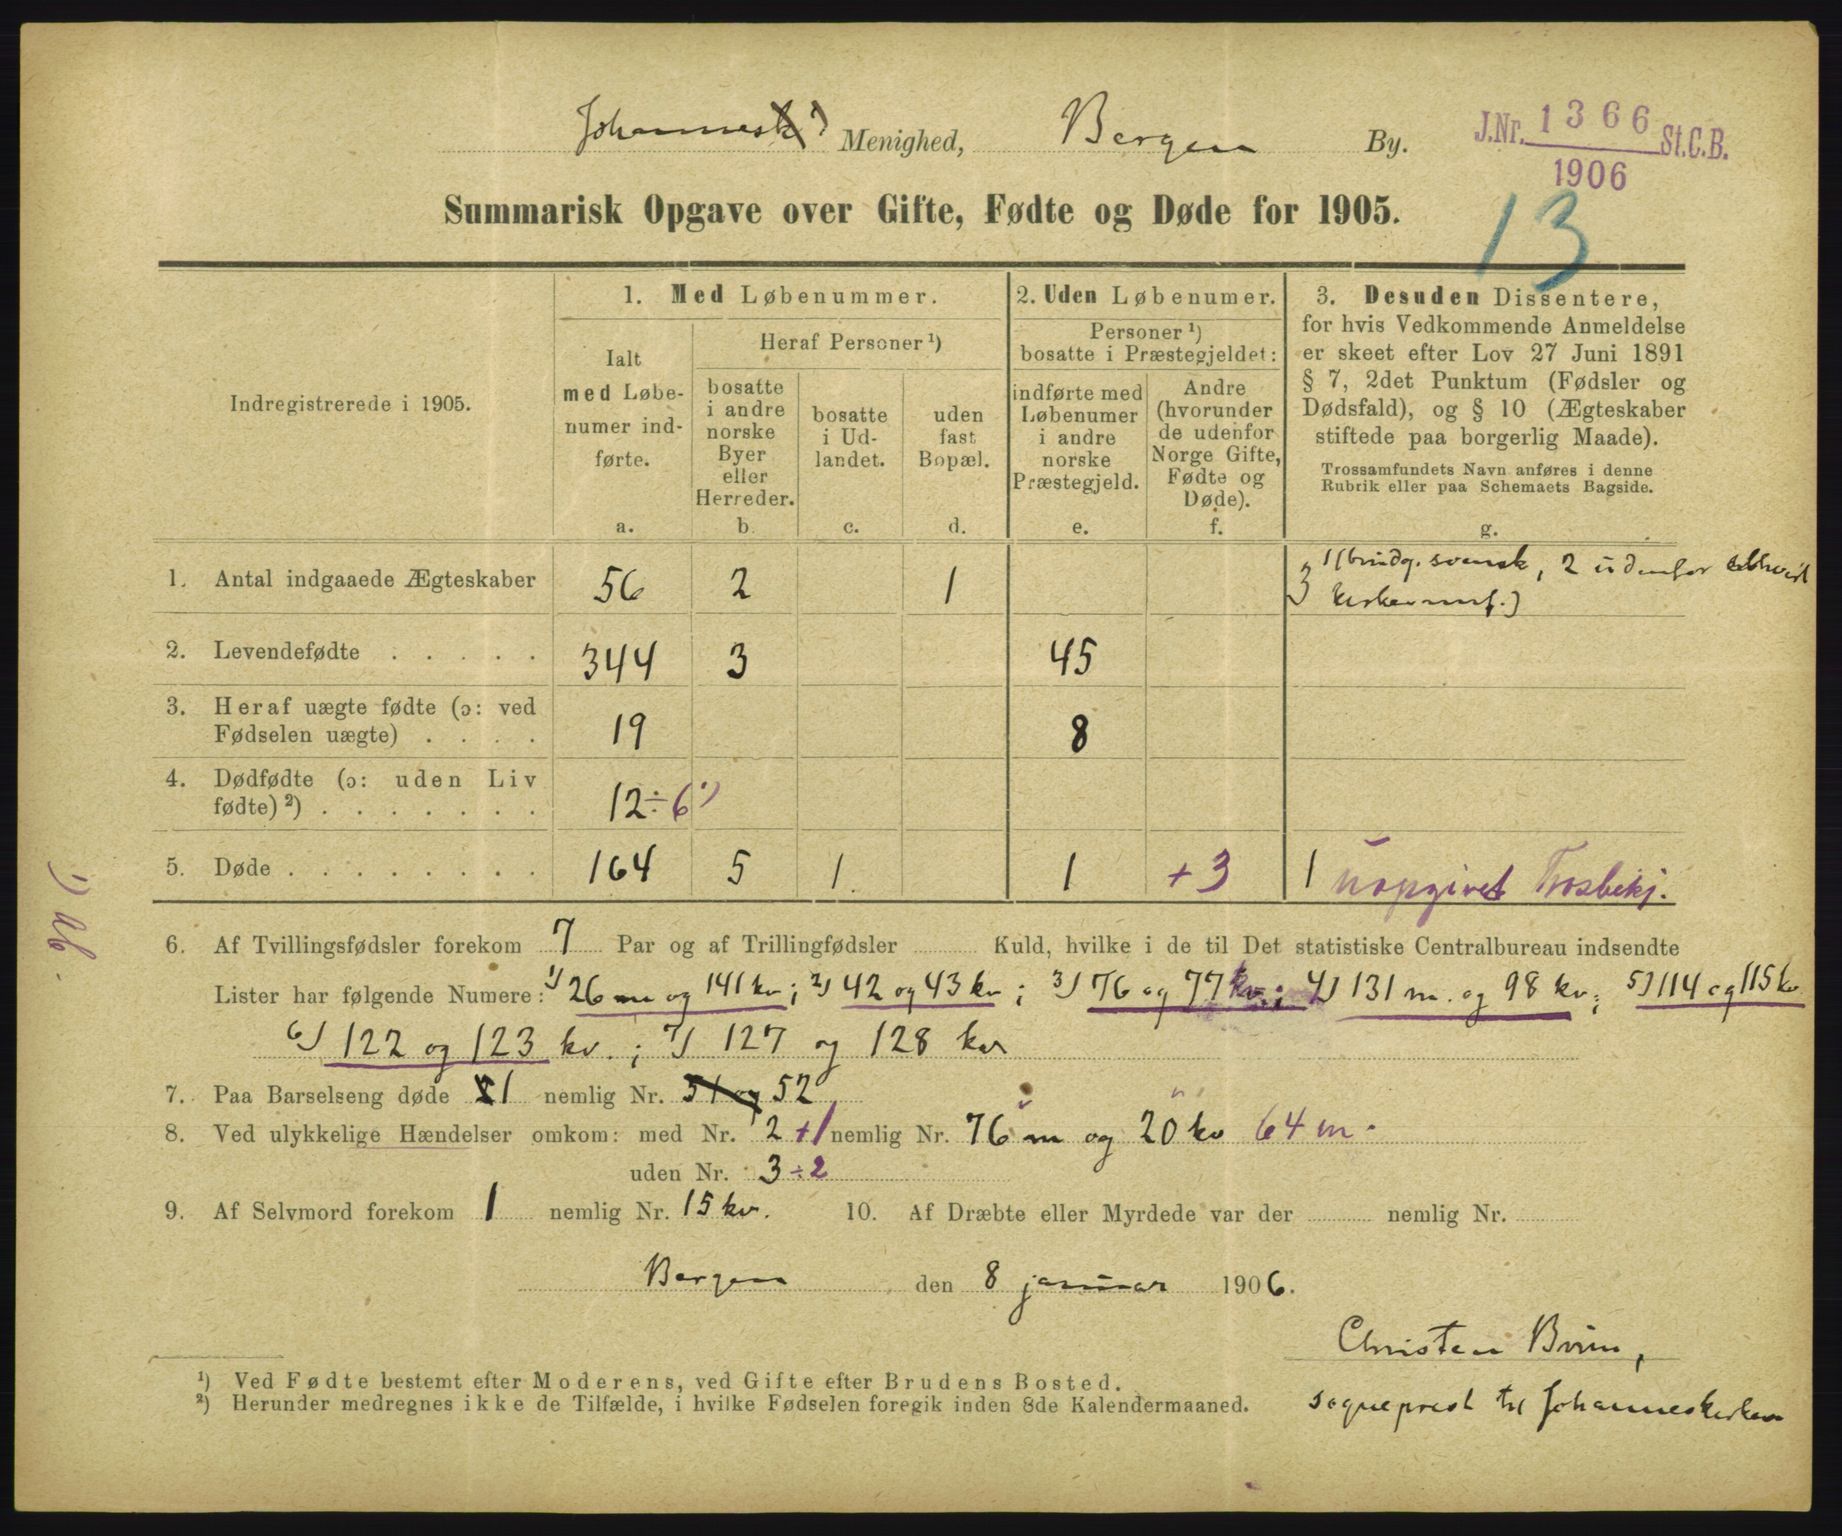 Johannesk ¹) Menighed, Bergen By.
J.Nr. 1366 St.C.B.
1906
13
Summarisk Opgave over Gifte, Fødte og Døde for 1905.
Indregistrerede i 1905.
1. Med Løbenummer.
Ialt med Løbe-
numer ind-
førte.
a.
Heraf Personer ¹)
bosatte
i andre
norske
Byer
eller
Herreder.
b.
bosatte
i Ud-
landet.
c.
uden
fast
Bopæl.
d.
2. Uden Løbenumer.
Personer ¹)
bosatte i Præstegjeldet:
indførte med
Løbenumer
i andre
norske
Præstegjeld.
e.
Andre
(hvorunder
de udenfor
Norge Gifte,
Fødte og
Døde).
f.
3. Desuden Dissentere,
for hvis Vedkommende Anmeldelse
er skeet efter Lov 27 Juni 1891
§ 7, 2det Punktum (Fødsler og
Dødsfald), og § 10 (Ægteskaber
stiftede paa borgerlig Maade).
Trossamfundets Navn anføres i denne
Rubrik eller paa Schemaets Bagside.
g.
1. Antal indgaaede Ægteskaber 56 2 1 3 1 (brudg. svensk, 2 udenfor
2. Levendefødte . . . . . 344 3 45
3. Heraf uægte fødte (ɔ: ved
Fødselen uægte) . . . . 19 8
4. Dødfødte (ɔ: uden Liv
fødte) ²) . . . . . . . 12 ÷ 6 ¹)
5. Døde . . . . . . . . 164 5 1. 1 + 3 1 uopgivet Trosbekj.
¹) Ab.
6. Af Tvillingsfødsler forekom 7 Par og af Trillingfødsler Kuld, hvilke i de til Det statistiske Centralbureau indsendte
Lister har følgende Numere: ¹) 26 m og 141 kv; ²) 42 og 43 kv; ³) 76 og 77 kv.; 4) 131 m. og 98 kv.; 5) 114 og 115 kv
6) 122 og 123 kv.; 7) 127 og 128 kv
7. Paa Barselseng døde 1 nemlig Nr. 51 og 52
8. Ved ulykkelige Hændelser omkom: med Nr. 2 +1 nemlig Nr. 76 m og 20 kv 64 m.
uden Nr. 3 ÷ 2
9. Af Selvmord forekom 1 nemlig Nr. 15 kv. 10. Af Dræbte eller Myrdede var der nemlig Nr.
Bergen den 8 januar 1906.
Christen Brun,
sogneprest til Johanneskirken
¹) Ved Fødte bestemt efter Moderens, ved Gifte efter Brudens Bosted.
²) Herunder medregnes ikke de Tilfælde, i hvilke Fødselen foregik inden 8de Kalendermaaned.